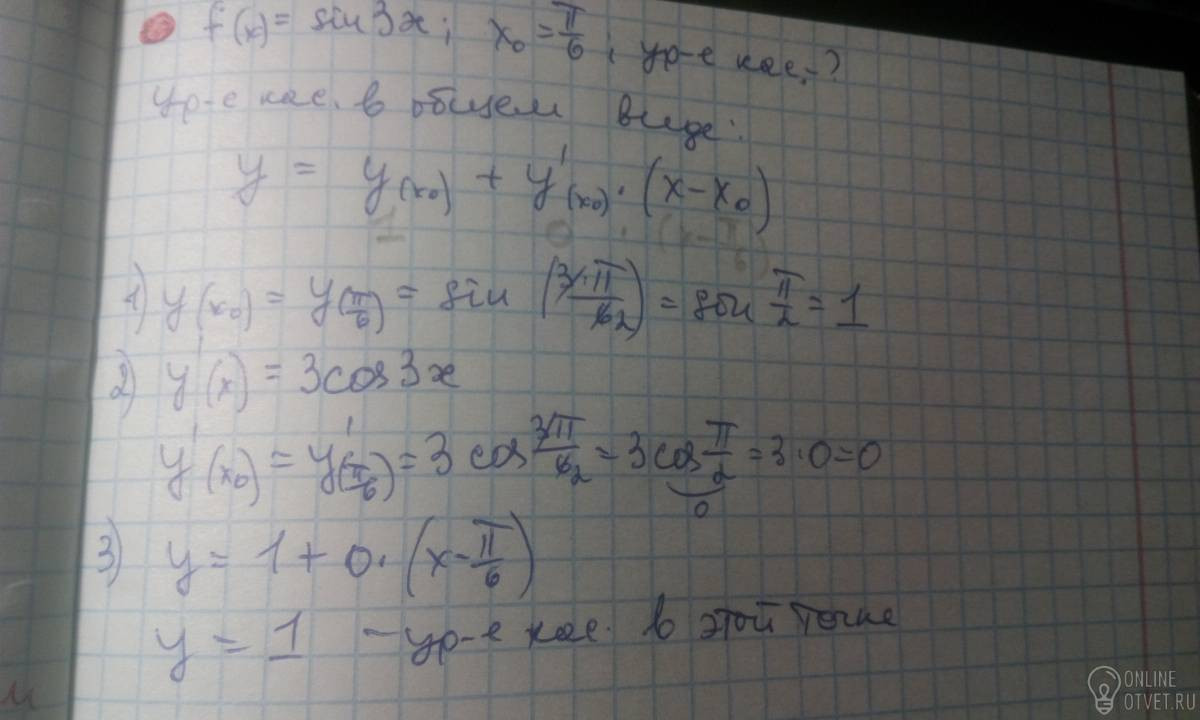 f(x) = sin3x; x₀ = π/6; ур-е кас.-?
ур-е кас. в общем виде:
y = y(x₀) + y'(x₀)·(x-x₀)
1 0 · (x-π/6)
1) y(x₀) = y(π/6) = sin (3·π/6 2) = sin π/2 = 1
2) y'(x) = 3cos3x
y'(x₀) = y'(π/6) = 3 cos 3π/6 2 = 3cos π/2 = 3·0=0
0
3) y = 1 + 0·(x-π/6)
y = 1 – ур-е кас. в этой точке
ONLINE
OTVET.RU